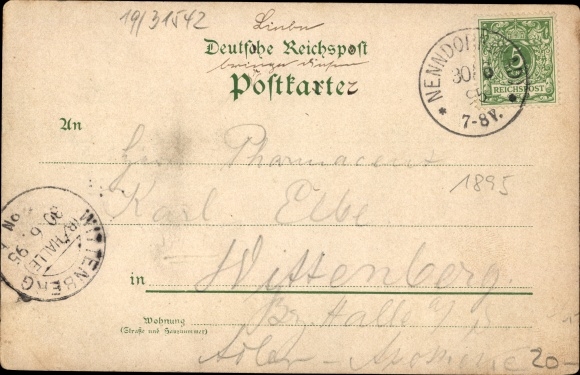 19/31542
Liebe
Deutsche Reichspost
Postkarte
An
NENNDORF
30
95
7-8V.
5
REICHSPOST
Herrn Pharmaceut
1895
Karl Elbe
WITTENBERG
30 6 95
in Wittenberg.
Bz. Halle a/S
Wohnung
(Straße und Hausnummer)
Adler-Apotheke
20-